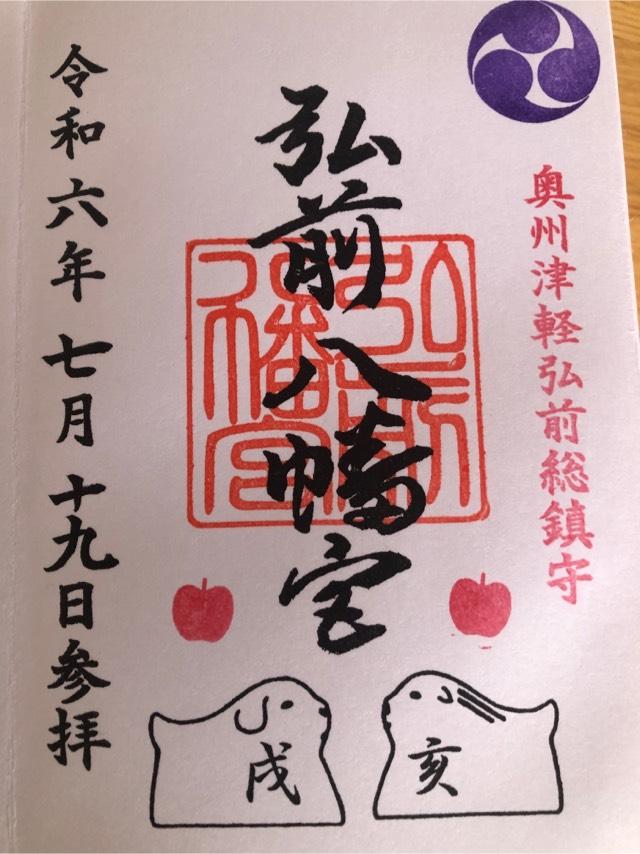 奥州津軽弘前総鎮守
弘前八幡宮
弘前八幡宮
令和六年七月十九日参拝
戌
亥